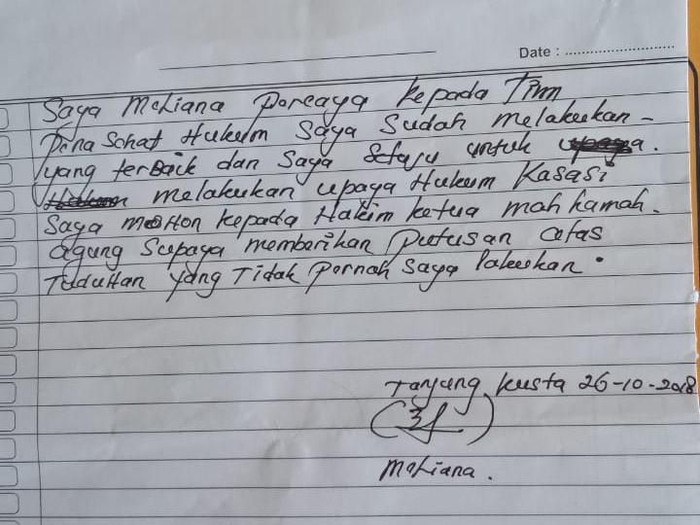 Date :
Saya Meliana Percaya kepada Tim
Penasehat Hukum Saya Sudah melakukan -
yang terbaik dan Saya Setuju untuk upaya.
Hukum melakukan upaya Hukum Kasasi
Saya moHon kepada Hakim ketua mahkamah.
agung Supaya memberikan putusan atas
TuduHan yang Tidak pernah Saya lakukan.
Tanjung kusta 26-10-2018
Meliana.